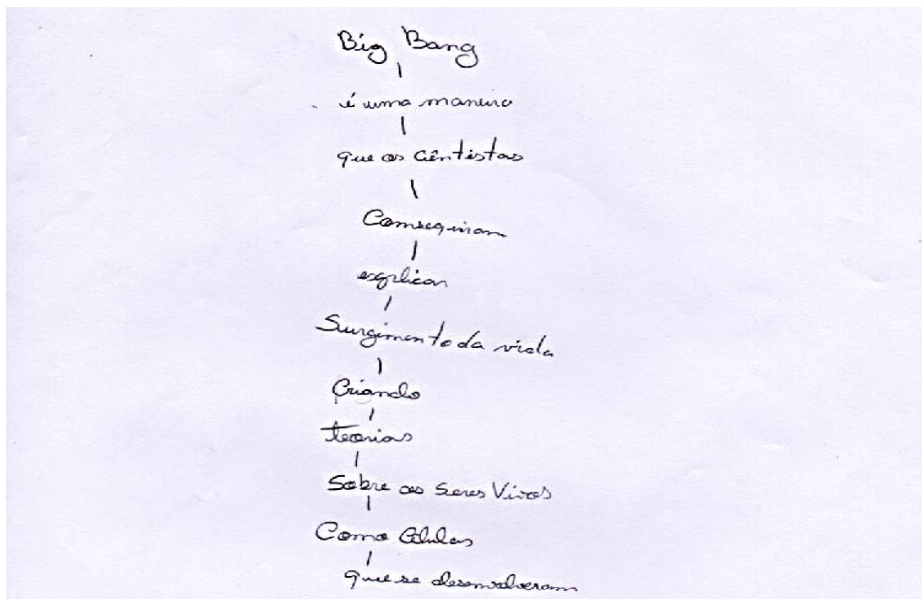 Big Bang
é uma maneira
que os Ciêntistas
Comseguiram
explicar
Surgimento da vida
Criando
teorias
Sobre os Seres Vivos
Como Células
que se desenvolveram